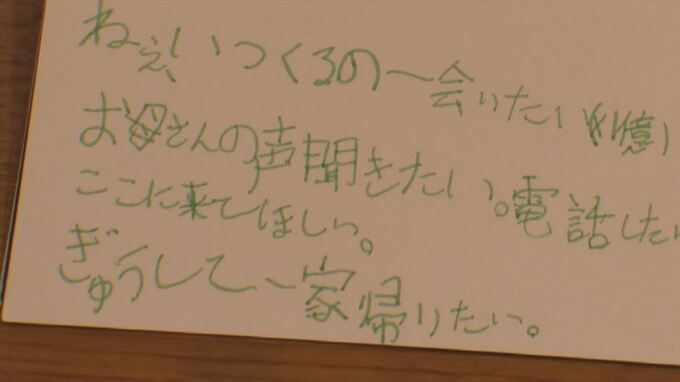 ねぇ!いつくるの〜会いたい(×1億)
お母さんの声聞きたい。電話したい
ここに来てほしい。
ぎゅうして〜家帰りたい。